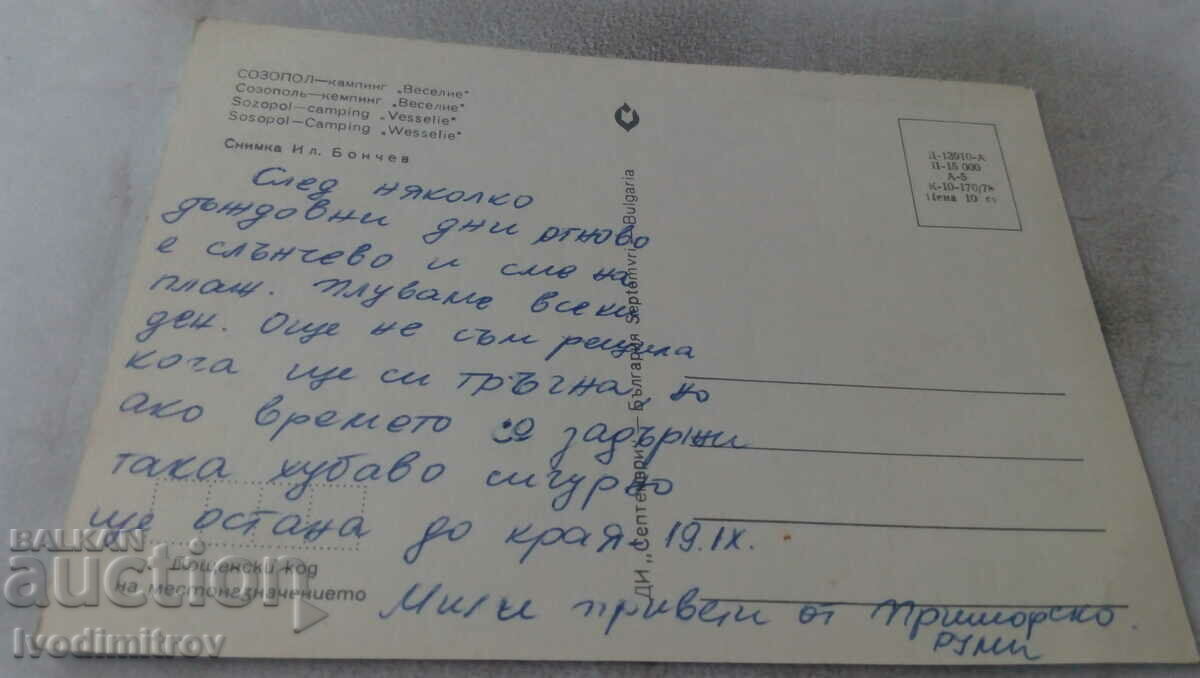 СОЗОПОЛ—кампинг „Веселие“
Созополь—кемпинг „Веселие“
Sozopol—camping „Vesselie“
Sosopol—Camping „Wesselie“
Снимка Ил. Бончев
След няколко
дъждовни дни отново
е слънчево и сме на
плаж. Плуваме всеки
ден. Още не съм решила
кога ще си тръгна, но
ако времето се задържи
така хубаво сигурно
ще остана до края- 19.IX.
Мили привети от Приморско.
Руми
Пощенски код
на местоназначението
ДИ „Септември“ — България Septemvri — Bulgaria
Д-12010-А
П-15 000
А-5
К-10-170/78
Цена 10 ст
BALKAN
auction
Ivodimitrov